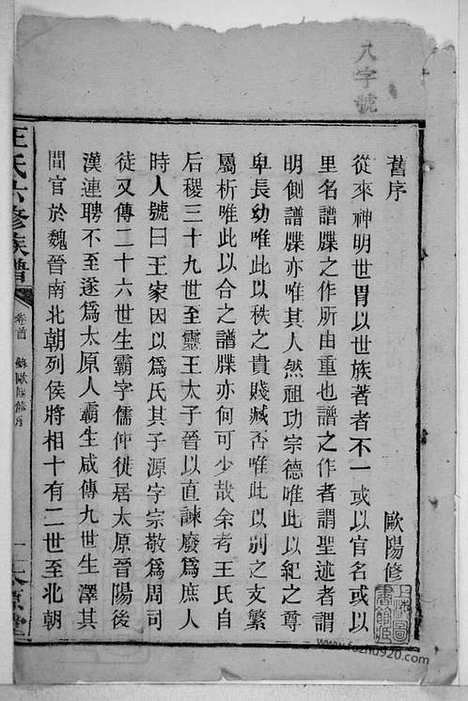 八字號
舊序
歐陽修
從來神明世胄以世族著者不一或以官名或以
里名譜牒之作所由重也譜之作者謂聖述者謂
明側譜牒亦唯其人然祖功宗德唯此以紀之尊
卑長幼唯此以秩之貴賤臧否唯此以別之支繁
屬析唯此以合之譜牒亦何可少哉余考王氏自
后稷三十九世至靈王太子晉以直諫廢爲庶人
時人號曰王家因以爲氏其子源字宗敬爲周司
徒又傳二十六世生霸字儒仲徙居太原晉陽後
漢連聘不至遂爲太原人霸生咸傳九世生澤其
間官於魏晉南北朝列侯將相十有二世至北朝
王氏六修族譜
卷首
一
太原堂
上海圖書館藏
www.fozhu920.com